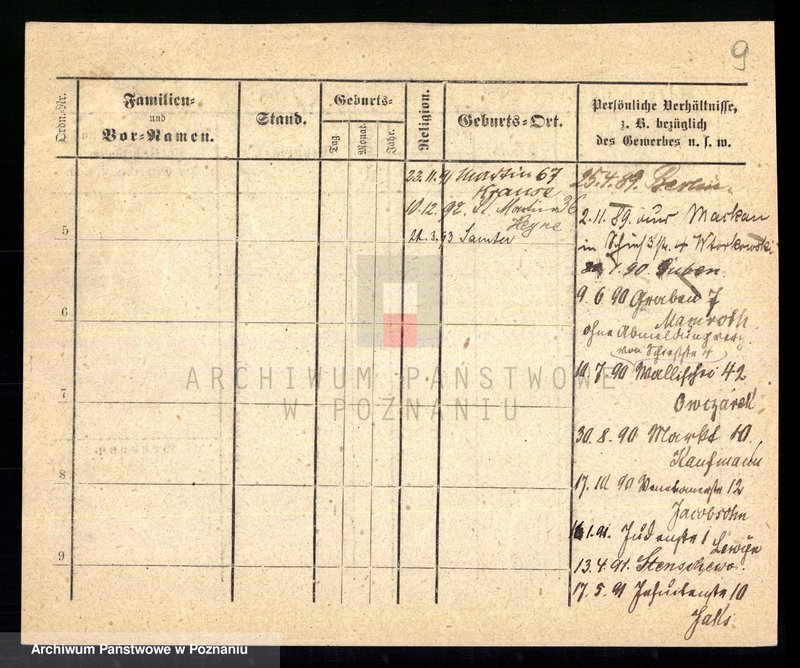 9
Ordn.-Nr.
Familien-
und
Vor-Namen.
Stand.
Geburts-
Tag.
Monat.
Jahr.
Religion.
Geburts-Ort.
Persönliche Verhältnisse,
z. B. bezüglich
des Gewerbes u. s. w.
23. 11. 91 Martin 67
Krause
10. 12. 92. St. Martin 36
Heyne
21. 3. 93 Samter
25. 4. 89. Berlin
2. 11. 89. aus
in 4
90. Guben
9. 6. 90 Graben 7
Mamroth
ohne Abmeldung
von 4
10. 7. 90 Wallischei 42
Owczarek
30. 8. 90 Markt 10,
Kaufmann
17. 10 90 12
Jacobsohn
16. 1. 91. Judenstr 1
Lewin
13. 4. 91. Stenschewo.
17. 5. 91 Jesuitenstr 10
5
6
7
8
9
ARCHIWUM PAŃSTWOWE
W POZNANIU
Archiwum Panstwowe w Poznaniu